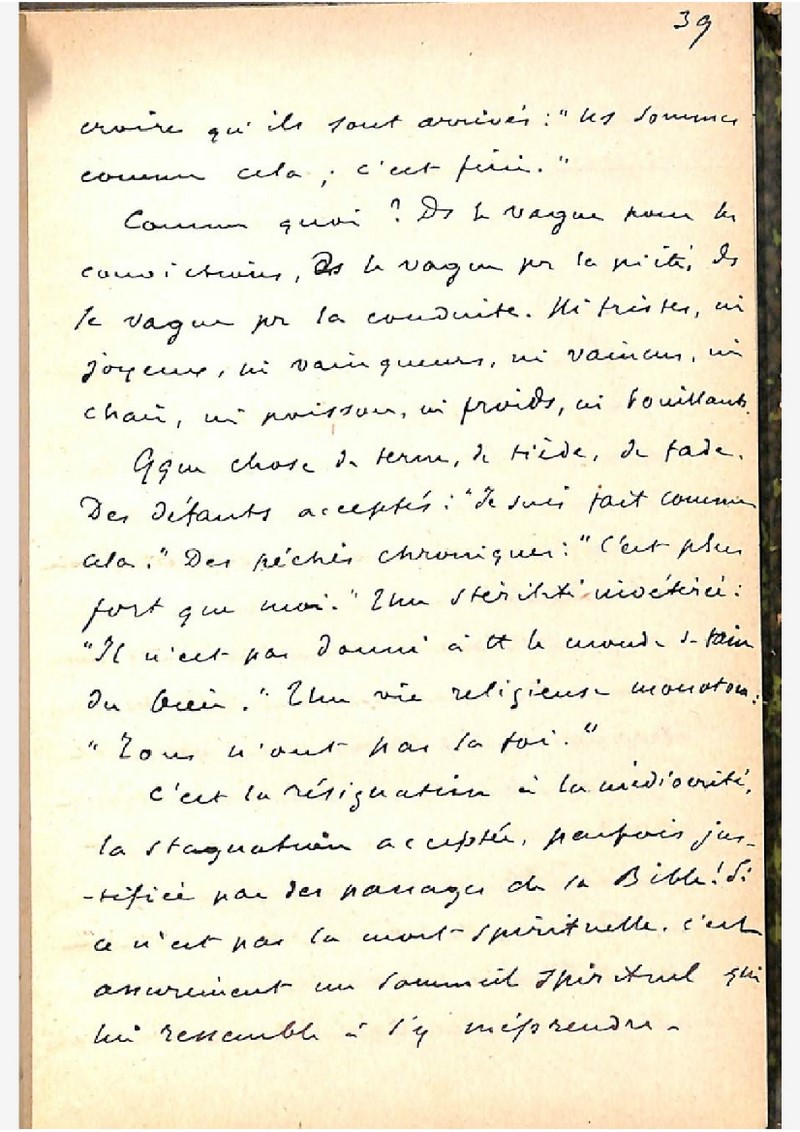 39
croire qu'ils sont arrivés : "ns sommes
comme cela ; c'est fini."
Comme quoi ? Ds le vague pour les
convictions, ds le vague pr la piété, ds
le vague pr la conduite. Ni tristes, ni
joyeux, ni vainqueurs, ni vaincus, ni
chair, ni poisson, ni froids, ni bouillants.
Qque chose de terne, de tiède, de fade.
Des défauts acceptés : "Je suis fait comme
cela." Des péchés chroniques : "C'est plus
fort que moi." Une stérilité invétérée :
"Il n'est pas donné à tt le monde de faire
du bien." Une vie religieuse monotone :
"Tous n'ont pas la foi."
C'est la résignation à la médiocrité,
la stagnation acceptée, parfois jus-
-tifiée par des passages de la Bible ! Si
ce n'est pas la mort spirituelle, c'est
assurément un sommeil spirituel qui
lui ressemble à s'y méprendre.